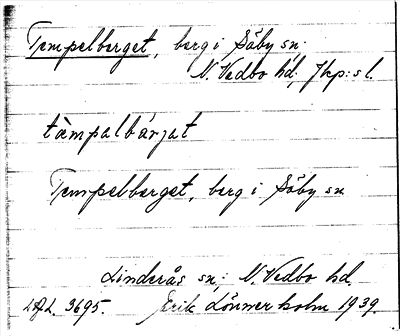 Tempelberget, berg i Säby sn,
N. Vedbo hd, Jkp:s l.
tàmpalbárjat
Tempelberget, berg i Säby sn
Linderås sn, N. Vedbo hd.
3695. Erik Lönnerholm 1939.